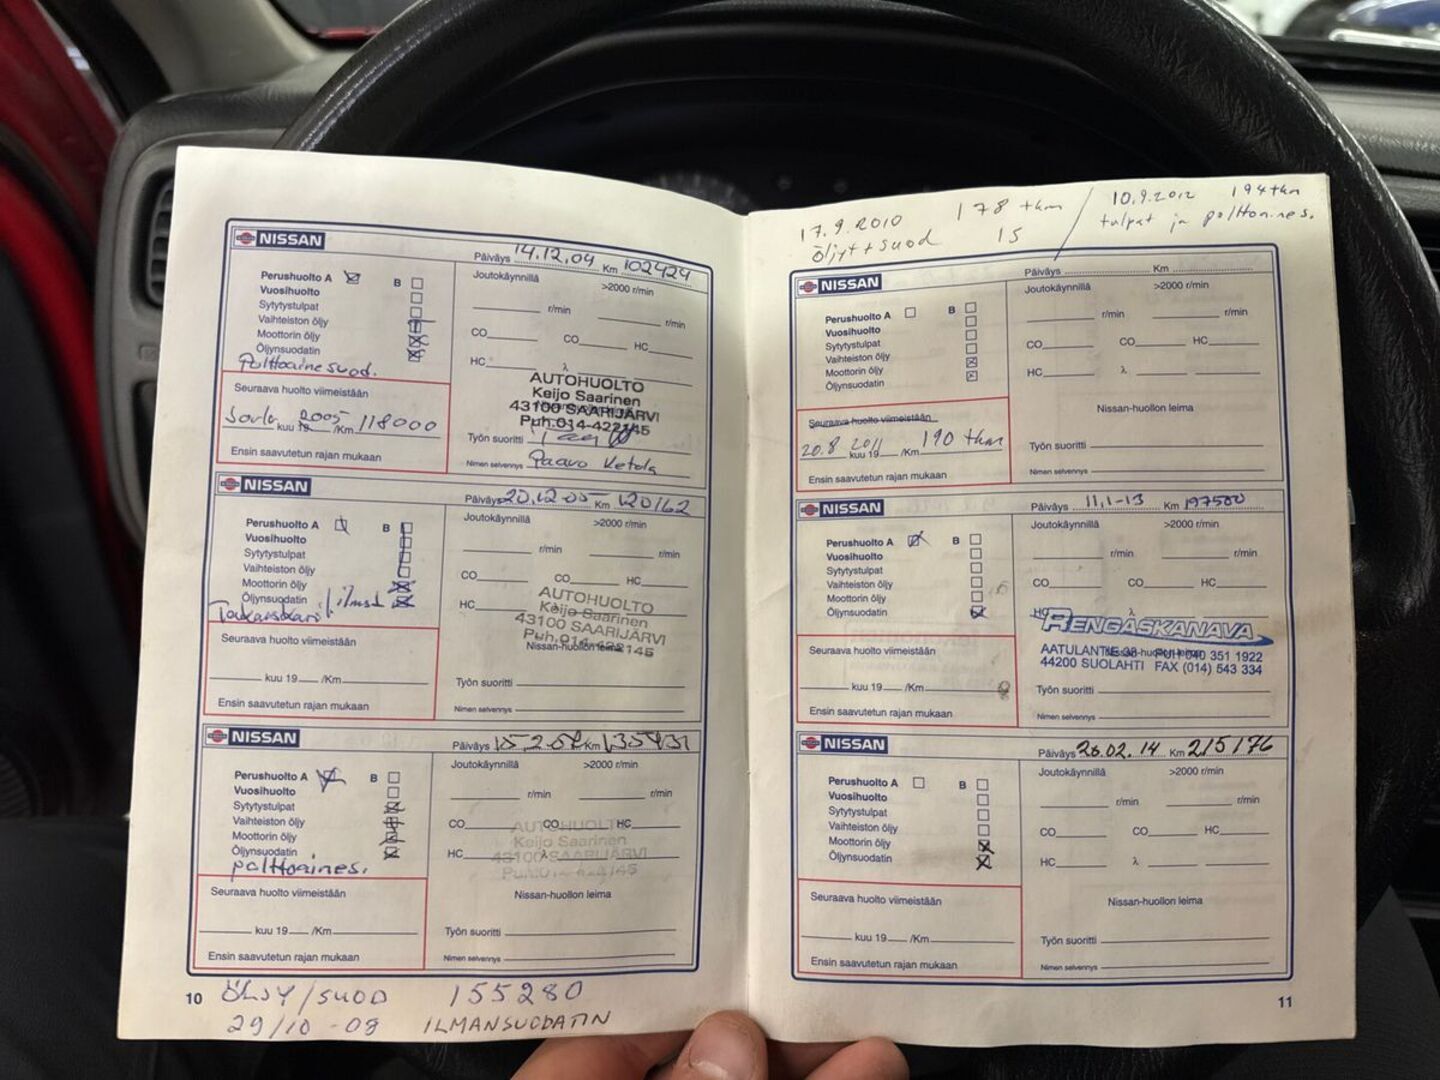 NISSAN
Päiväys 14.12.04 Km 102424
Perushuolto A B
Vuosihuolto
Sytytystulpat
Vaihteiston öljy
Moottorin öljy
Öljynsuodatin
Polttoainesuod.
Joutokäynnillä >2000 r/min
r/min r/min
CO CO HC
HC
AUTOHUOLTO
Keijo Saarinen
43100 SAARIJÄRVI
Puh.014-422145
Seuraava huolto viimeistään
Joulu 2005 kuu 19 /Km 118000
Ensin saavutetun rajan mukaan
Työn suoritti
Nimen selvennys Paavo Ketola
NISSAN
Päiväys 20.12.05 Km 120162
Perushuolto A B
Vuosihuolto
Sytytystulpat
Vaihteiston öljy
Moottorin öljy
Öljynsuodatin
Joutokäynnillä >2000 r/min
r/min r/min
CO CO HC
HC
AUTOHUOLTO
Keijo Saarinen
43100 SAARIJÄRVI
Puh.014-422145
Nissan-huollon leima
Seuraava huolto viimeistään
kuu 19 /Km
Ensin saavutetun rajan mukaan
Työn suoritti
Nimen selvennys
NISSAN
Päiväys 15.2.07 Km 135931
Perushuolto A B
Vuosihuolto
Sytytystulpat
Vaihteiston öljy
Moottorin öljy
Öljynsuodatin
polttoaines.
Joutokäynnillä >2000 r/min
r/min r/min
CO CO HC
HC λ
AUTOHUOLTO
Keijo Saarinen
43100 SAARIJÄRVI
Puh.014-422145
Nissan-huollon leima
Seuraava huolto viimeistään
kuu 19 /Km
Ensin saavutetun rajan mukaan
Työn suoritti
Nimen selvennys
10 ÖLJY/SUOD 155280
29/10 -08 ILMANSUODATIN
17.9.2010 178 tkm / 10.9.2012 194tkm
öljyt+suod 15 tulpat ja polttoaines.
NISSAN
Päiväys Km
Perushuolto A B
Vuosihuolto
Sytytystulpat
Vaihteiston öljy
Moottorin öljy
Öljynsuodatin
Joutokäynnillä >2000 r/min
r/min r/min
CO CO HC
HC λ
Nissan-huollon leima
Seuraava huolto viimeistään
20.8.2011 kuu 19 /Km 190 tkm
Ensin saavutetun rajan mukaan
Työn suoritti
Nimen selvennys
NISSAN
Päiväys 11.1-13 Km 197500
Perushuolto A B
Vuosihuolto
Sytytystulpat
Vaihteiston öljy
Moottorin öljy
Öljynsuodatin
Joutokäynnillä >2000 r/min
r/min r/min
CO CO HC
HC λ
RENGASKANAVA
AATULANTIE 38 PUH 040 351 1922
44200 SUOLAHTI FAX (014) 543 334
Seuraava huolto viimeistään
kuu 19 /Km
Ensin saavutetun rajan mukaan
Työn suoritti
Nimen selvennys
NISSAN
Päiväys 26.02.14 Km 215176
Perushuolto A B
Vuosihuolto
Sytytystulpat
Vaihteiston öljy
Moottorin öljy
Öljynsuodatin
Joutokäynnillä >2000 r/min
r/min r/min
CO CO HC
HC λ
Nissan-huollon leima
Seuraava huolto viimeistään
kuu 19 /Km
Ensin saavutetun rajan mukaan
Työn suoritti
Nimen selvennys
11